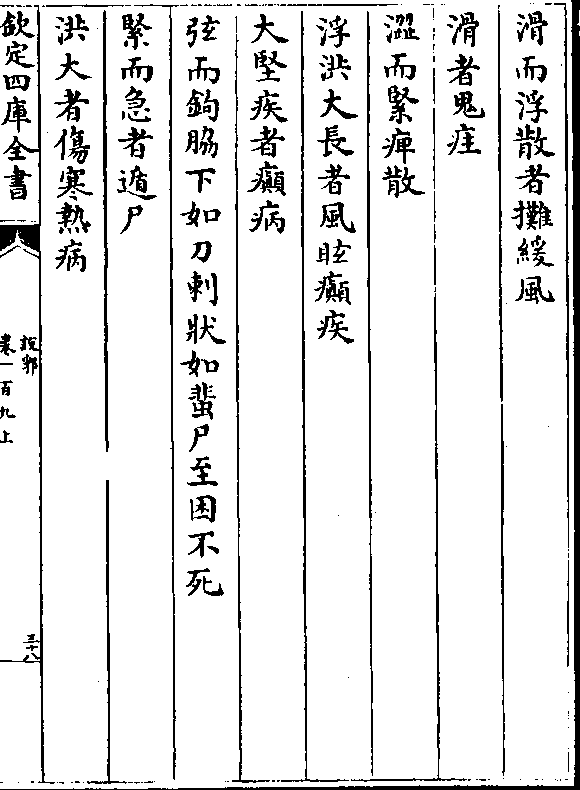 滑而浮散者攤緩風
滑者鬼疰
澀而緊痺散
浮洪大長者風眩癲疾
大堅疾者癲病
弦而鉤脇下如刀刺狀如蜚尸至困不死
緊而急者遁尸
洪大者傷寒熱病
欽定四庫全書
說郛
卷一百九上
三十八